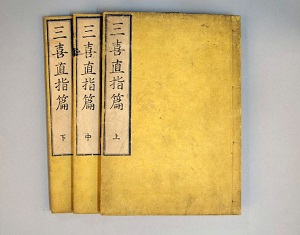 三喜直指篇 上
三喜直指篇 中
三喜直指篇 下